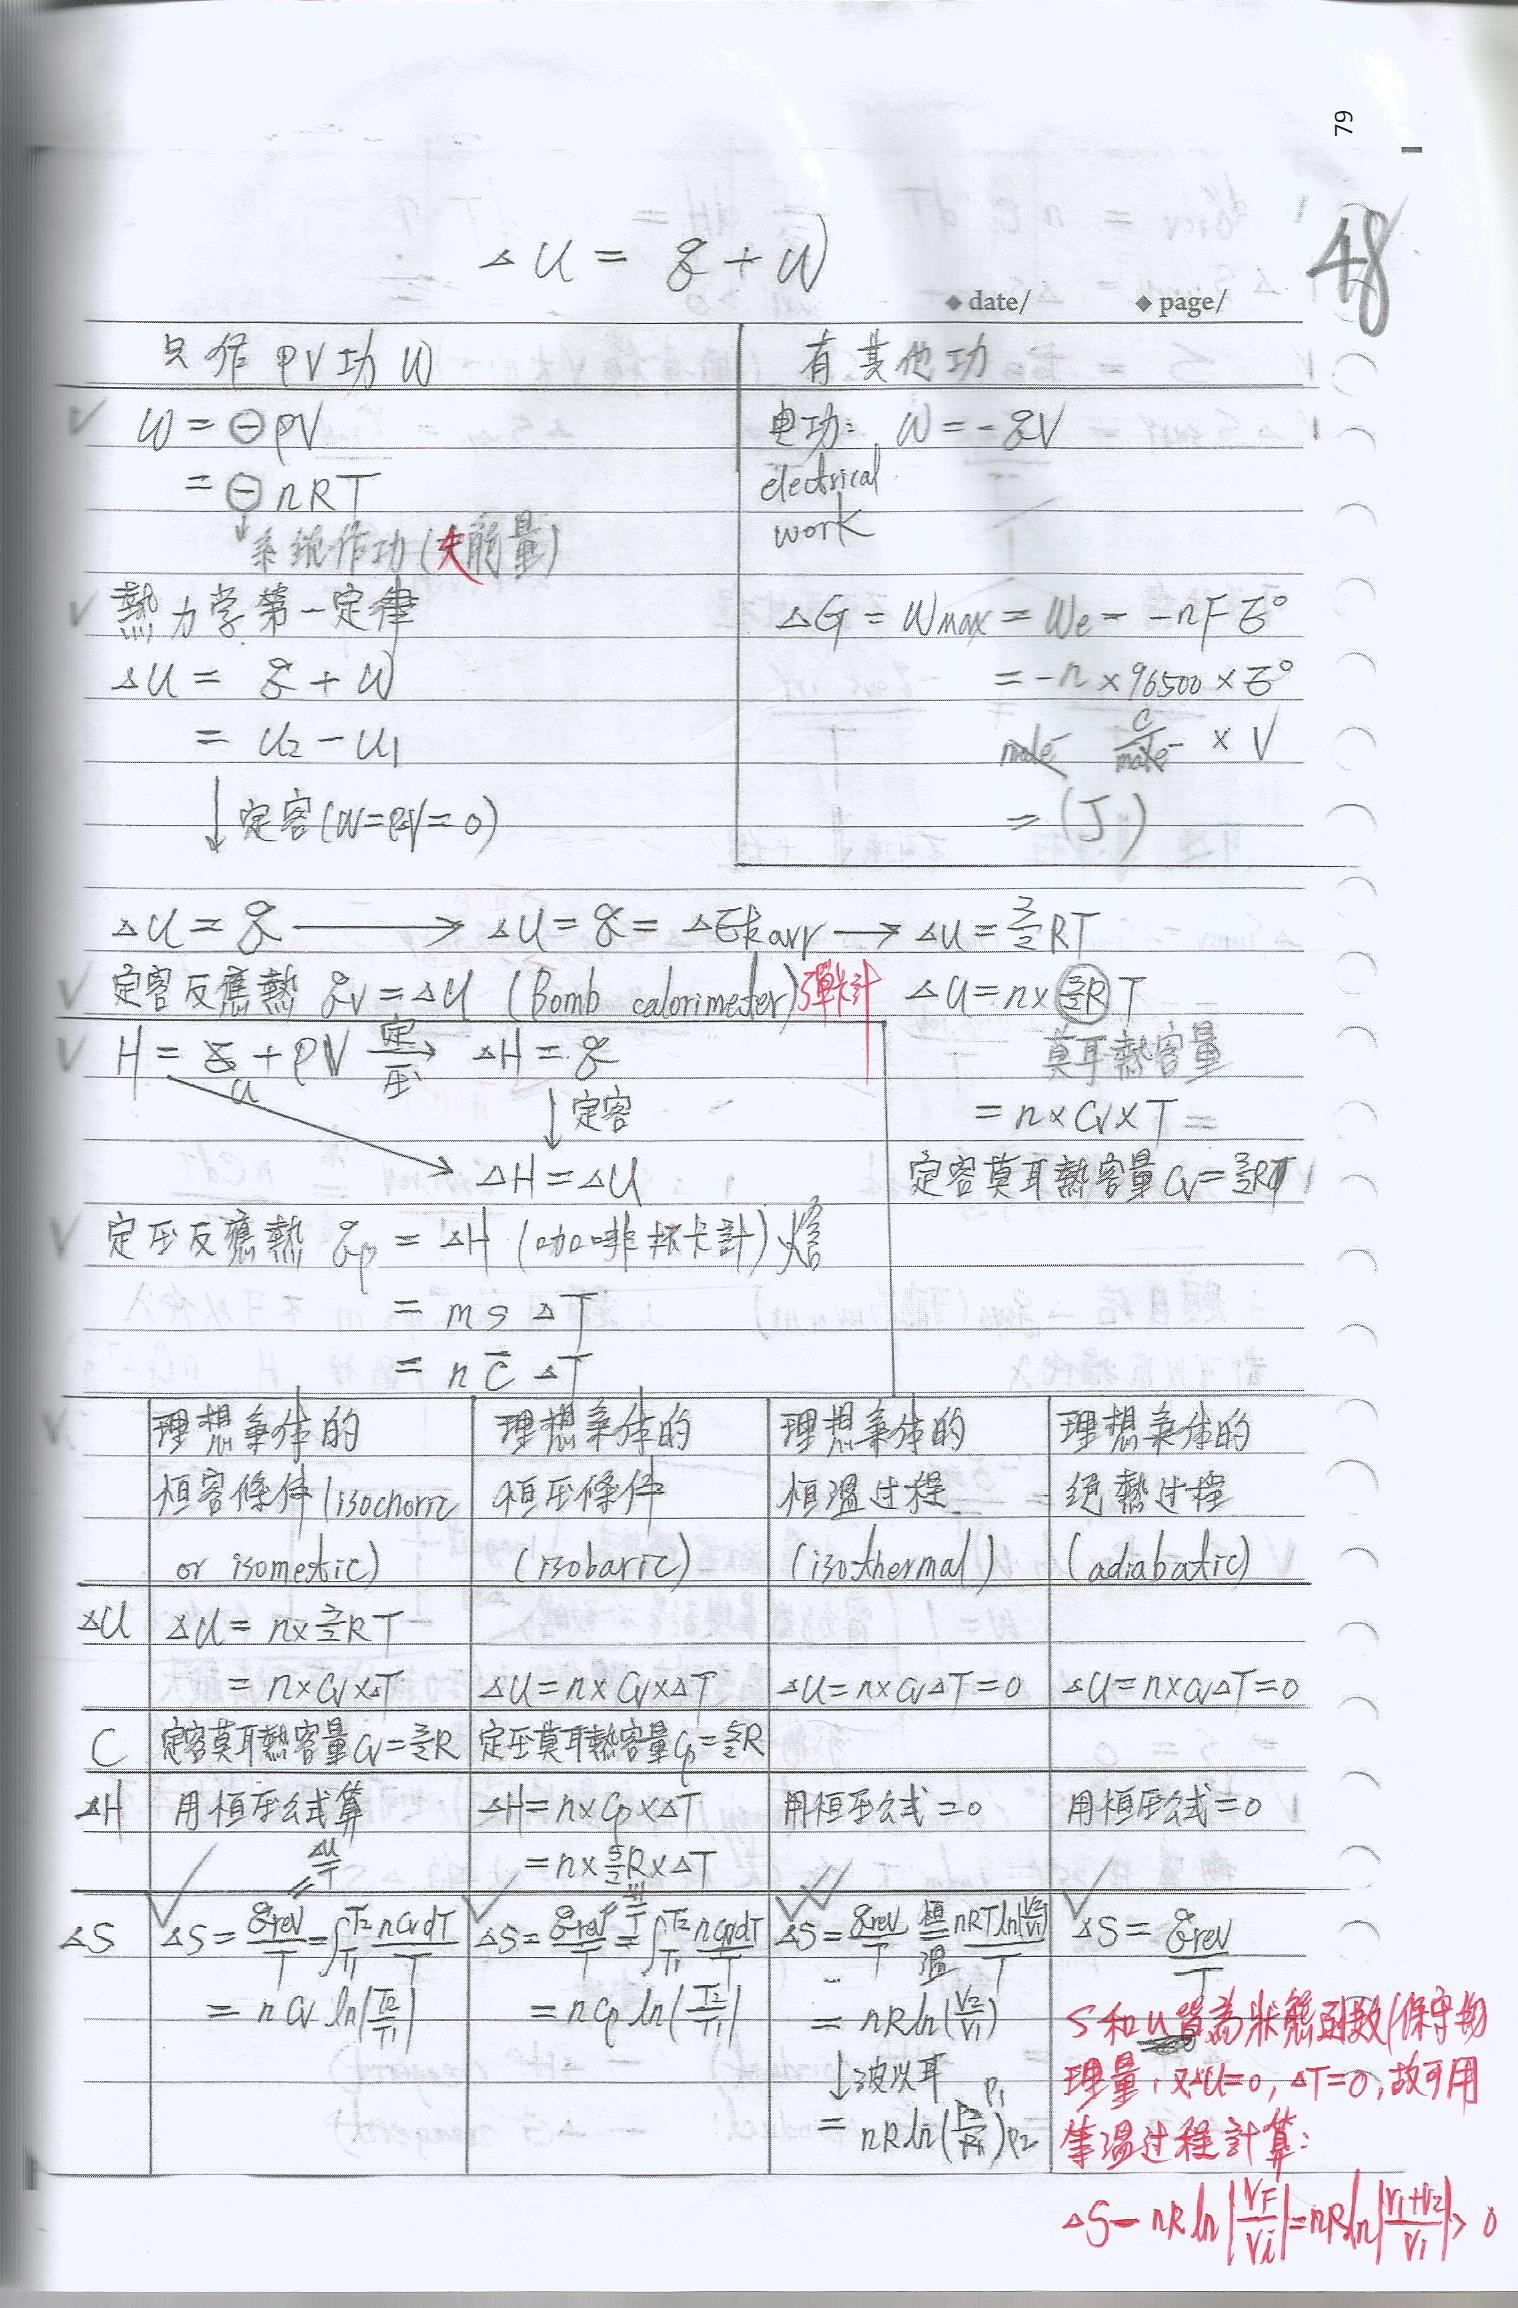 79
48
ΔU = q + W
◆ date/ ◆ page/
只作PV功W
有其他功
W = ⊖PV
= ⊖nRT
↓系統作功(失能量)
电功: W = -qV
electrical
work
熱力学第一定律
ΔU = q + W
= U₂ - U₁
↓定容(W=PV=0)
ΔG = Wmax = We = -nFE°
= -n × 96500 × E°
mole⁻ C/mole⁻ × V
= (J)
ΔU = q → ΔU = q = ΔEk → ΔU = 3/2 RT
定容反應熱 qv = ΔU (Bomb calorimeter) 彈卡計
ΔU = n × 3/2R T
莫耳熱容量
= n × Cv × T =
定容莫耳熱容量Cv = 3/2R
H = q + PV 定压→ ΔH = q
U
↓定容
ΔH = ΔU
定压反應熱 qp = ΔH (咖啡杯卡計) 焓
= m s ΔT
= n C̄ ΔT
理想氣体的
恒容條件(isochoric
or isometic)
理想氣体的
恒压條件
(isobaric)
理想氣体的
恒溫过程
(isothermal)
理想氣体的
絕熱过程
(adiabatic)
ΔU
ΔU = n× 3/2 RT
= n×Cv×ΔT
ΔU = n×Cv×ΔT
ΔU = n×CvΔT = 0
ΔU = n×CvΔT = 0
C
定容莫耳熱容量Cv = 3/2R
定压莫耳熱容量Cp = 5/2R
ΔH
用恒压公式算
ΔH = n×Cp×ΔT
= n× 5/2R ×ΔT
用恒压公式 = 0
用恒压公式 = 0
ΔS
ΔU/T
=
ΔS = qrev/T = ∫T₁T₂ nCvdT/T
= nCv ln|T₂/T₁|
ΔS = qrev/T = ∫T₁T₂ nCpdT/T
= nCp ln|T₂/T₁|
ΔS = qrev/T 恒溫= nRT ln|V₂/V₁|/T
= nR ln(V₂/V₁)
↓波以耳
= nR ln(P₁/P₂)
ΔS = qrev/T
S和U皆為狀態函数(保守物
理量,又ΔU=0, ΔT=0,故可用
等溫过程計算:
ΔS = nR ln|VF/Vi| = nR ln|V₁+V₂/V₁| > 0